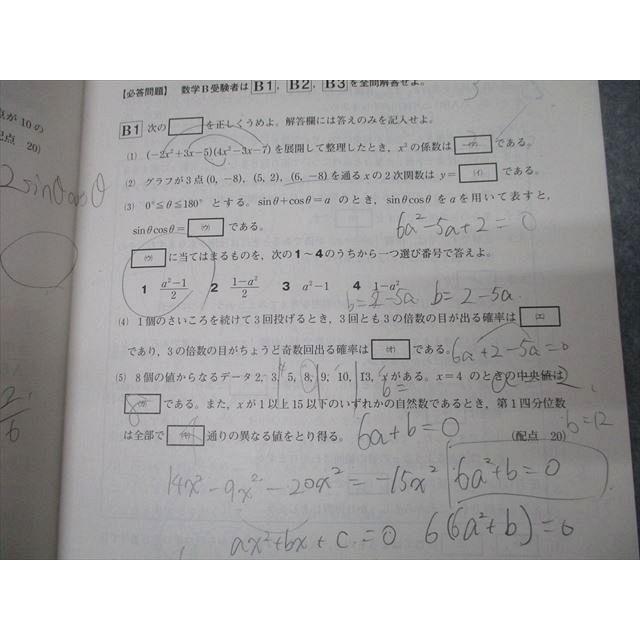 【必答問題】 数学B受験者は B1 , B2 , B3 を全問解答せよ。
点が 10 の
配点 20)
2sinθcosθ
B1 次の を正しくうめよ。解答欄には答えのみを記入せよ。
(1) (-2x²+3x-5)(4x²-3x-7) を展開して整理したとき，x²の係数は である。
(2) グラフが3点(0, -8)，(5, 2)，(6, -8)を通るxの2次関数は y= (イ) である。
(3) 0°≦θ≦180° とする。sinθ+cosθ=a のとき，sinθcosθ を a を用いて表すと，
sinθcosθ= (ウ) である。
6a²-5a+2=0
(ウ) に当てはまるものを，次の1～4のうちから一つ選び番号で答えよ。
1 a²-1/2 2 1-a²/2 3 a²-1 4 1-a²
b=2-5a b=2-5a
(4) 1個のさいころを続けて3回投げるとき，3回とも3の倍数の目が出る確率は (エ)
であり，3の倍数の目がちょうど奇数回出る確率は (オ) である。
6a+2-5a=0
(5) 8個の値からなるデータ 2，3，5，8，9，10，13，xがある。x=4 のときの中央値は
である。また，xが1以上15以下のいずれかの自然数であるとき，第1四分位数
b=12
は全部で 通りの異なる値をとり得る。 (配点 20)
6a+b=0
14x²-9x²-20x²=-15x²
6a²+b=0
ax²+bx+c=0
6(6a²+b)=0
2
6